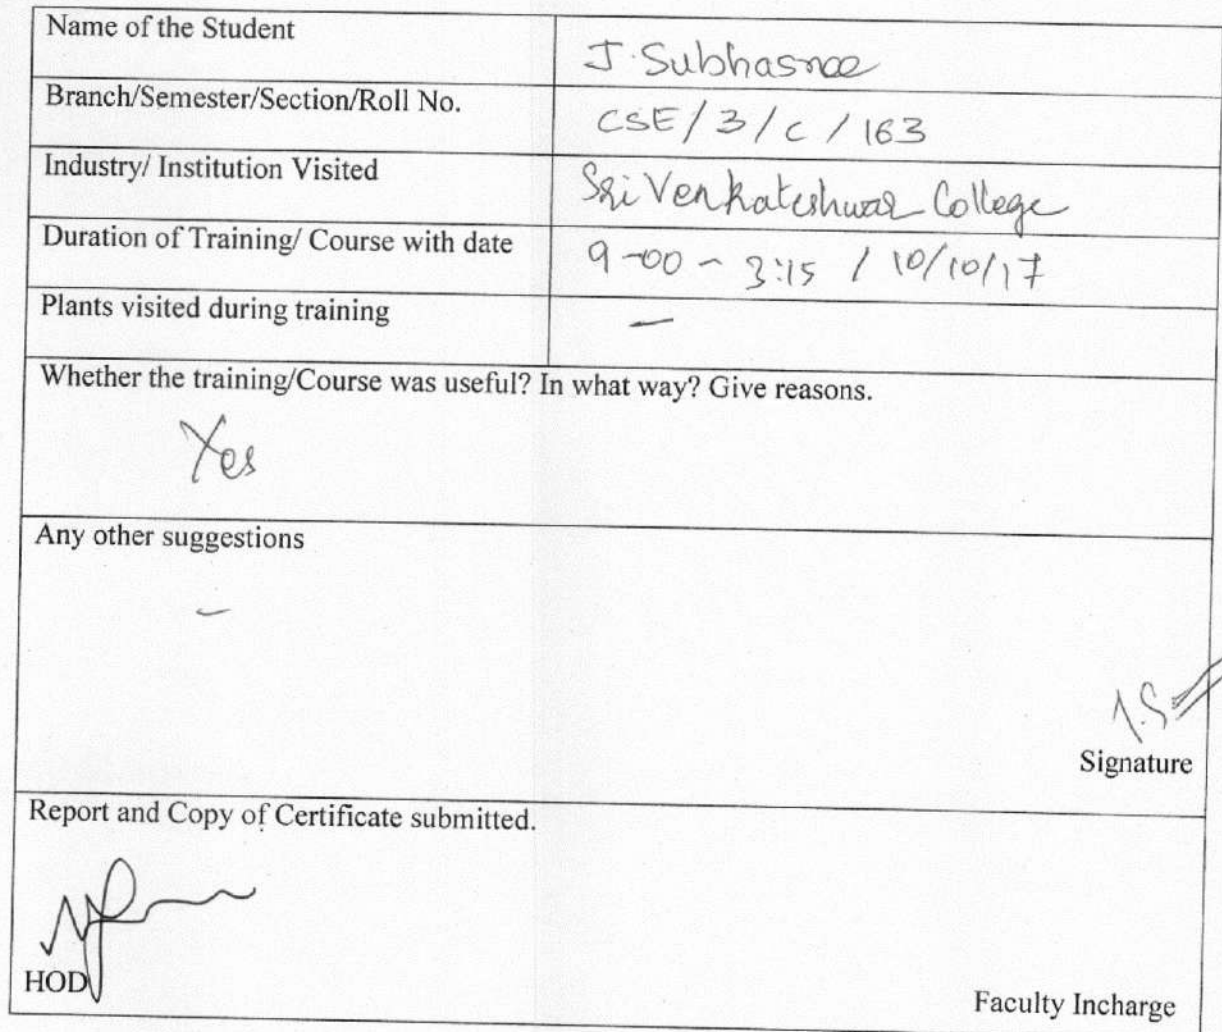 Name of the Student
J. Subhasree
Branch/Semester/Section/Roll No.
CSE / 3 / C / 163
Industry/ Institution Visited
Sri Venkateshwar College
Duration of Training/ Course with date
9-00 - 3:15 / 10/10/17
Plants visited during training
—
Whether the training/Course was useful? In what way? Give reasons.
Yes
Any other suggestions
-
J.S
Signature
Report and Copy of Certificate submitted.
HOD
Faculty Incharge